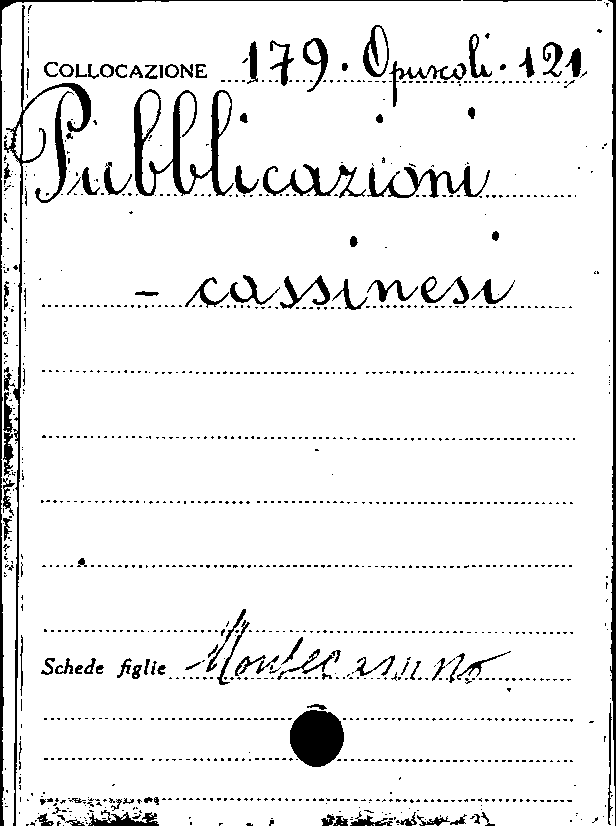 COLLOCAZIONE 179. Opuscoli. 121
Pubblicazioni
- cassinesi
Schede figlie Montecassino